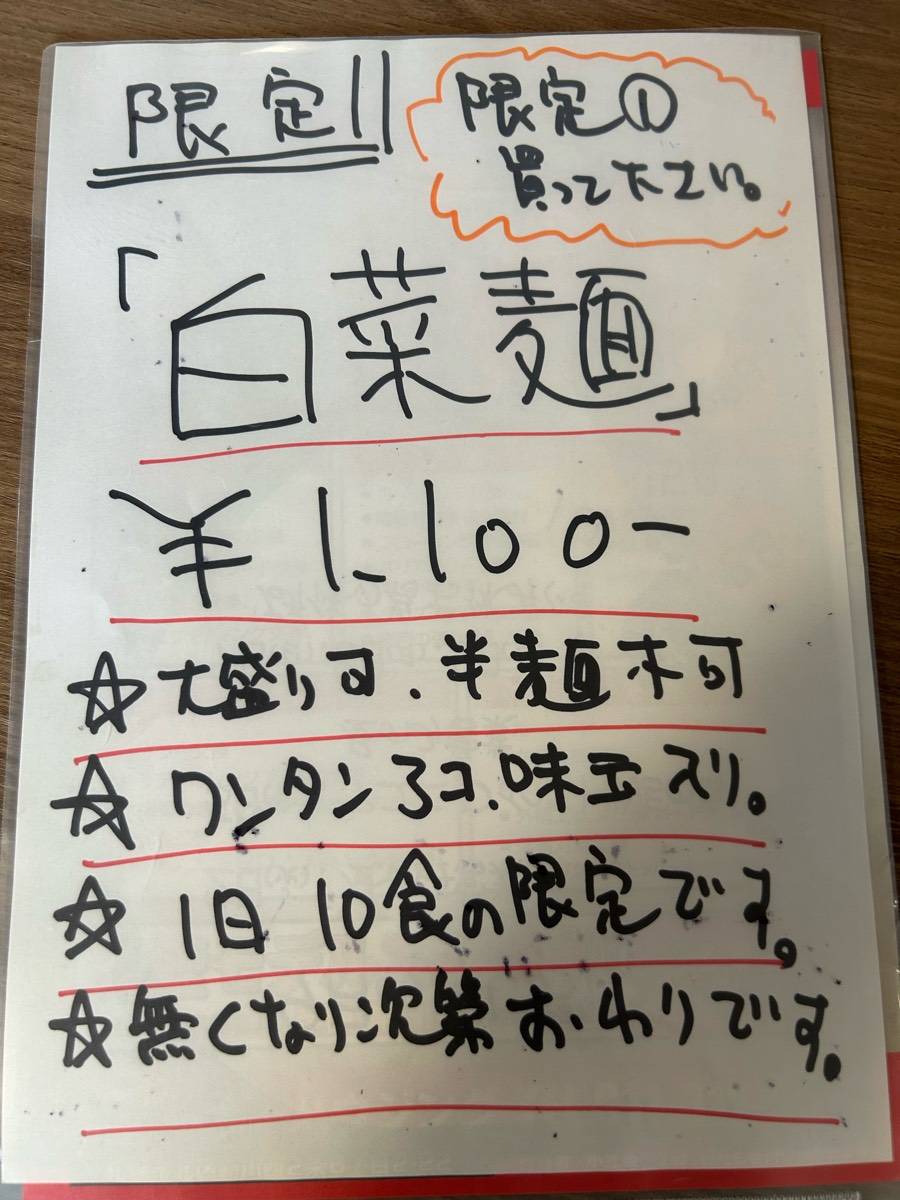 限定!!
限定①
買って下さい。
「白菜麺」
¥1,100-
☆大盛り可、半麺不可
☆ワンタン3コ、味玉入り。
☆1日10食の限定です。
☆無くなり次第おわりです。